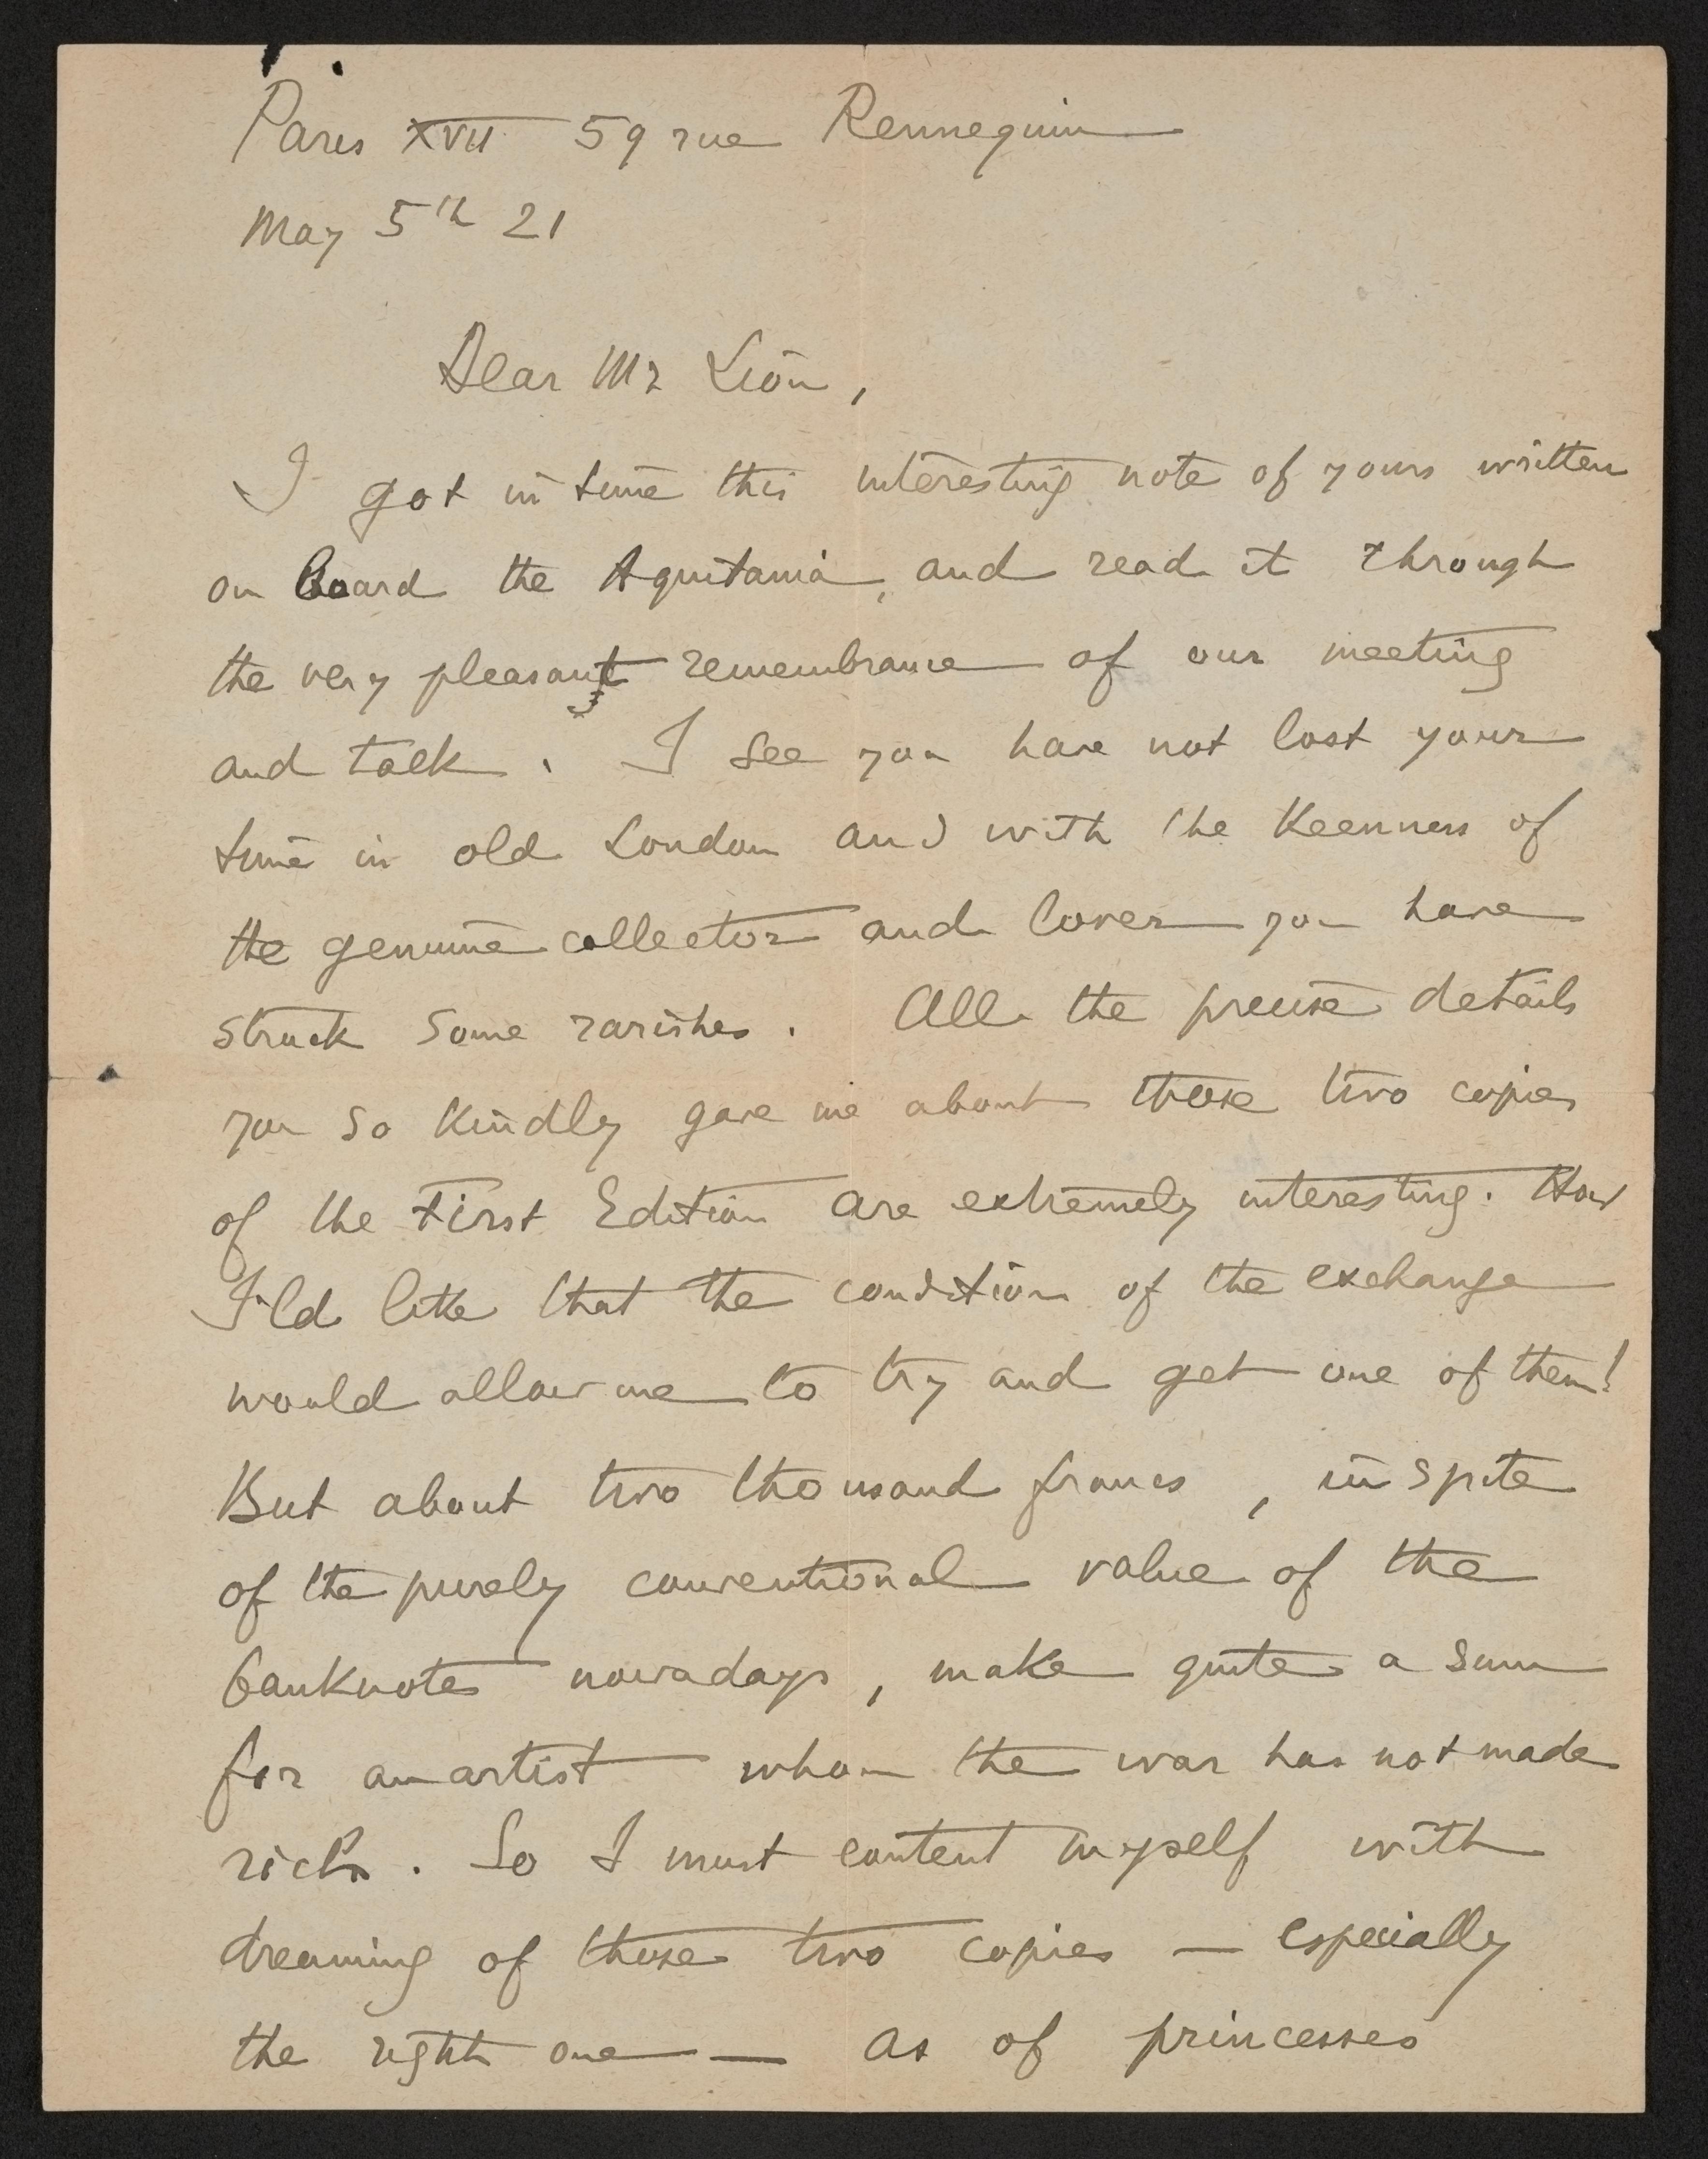 Paris XVII 59 rue Rennequin
May 5th 21
Dear Mr Lion,
I got in time this interesting note of yours written
on board the Aquitania, and read it through
the very pleasant remembrance of our meeting
and talk. I see you have not lost your
time in old London and with the Keenness of
the genuine collector and lover you have
struck some rarities. All the precise details
you so kindly gave me about those two copies
of the First Edition are extremely interesting. How
I'ld like that the condition of the exchange
would allow me to try and get one of them!
But about two thousand francs, in spite
of the purely conventional value of the
banknote nowadays, make quite a sum
for an artist whom the war has not made
rich. So I must content myself with
dreaming of those two copies — especially
the right one — as of princesses